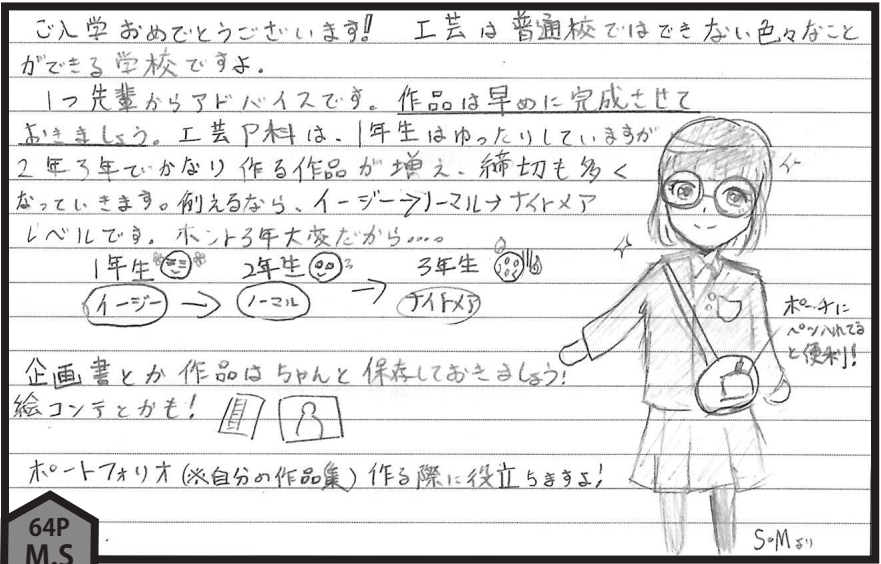 ご入学おめでとうございます!! 工芸は普通校ではできない色々なこと
ができる学校ですよ。
1つ先輩からアドバイスです。作品は早めに完成させて
おきましょう。工芸P科は、1年生はゆったりしていますが
2年3年でかなり作る作品が増え、締切も多く
なっていきます。例えるなら、イージー→ノーマル→ナイトメア
レベルです。ホント3年大変だから....
1年生 2年生 3年生
イージー → ノーマル → ナイトメア
ポーチに
ペン入れてる
と便利!
企画書とか作品はちゃんと保存しておきましょう!
絵コンテとかも!
ポートフォリオ(※自分の作品集)作る際に役立ちますよ!
S.Mより
64P
M.S